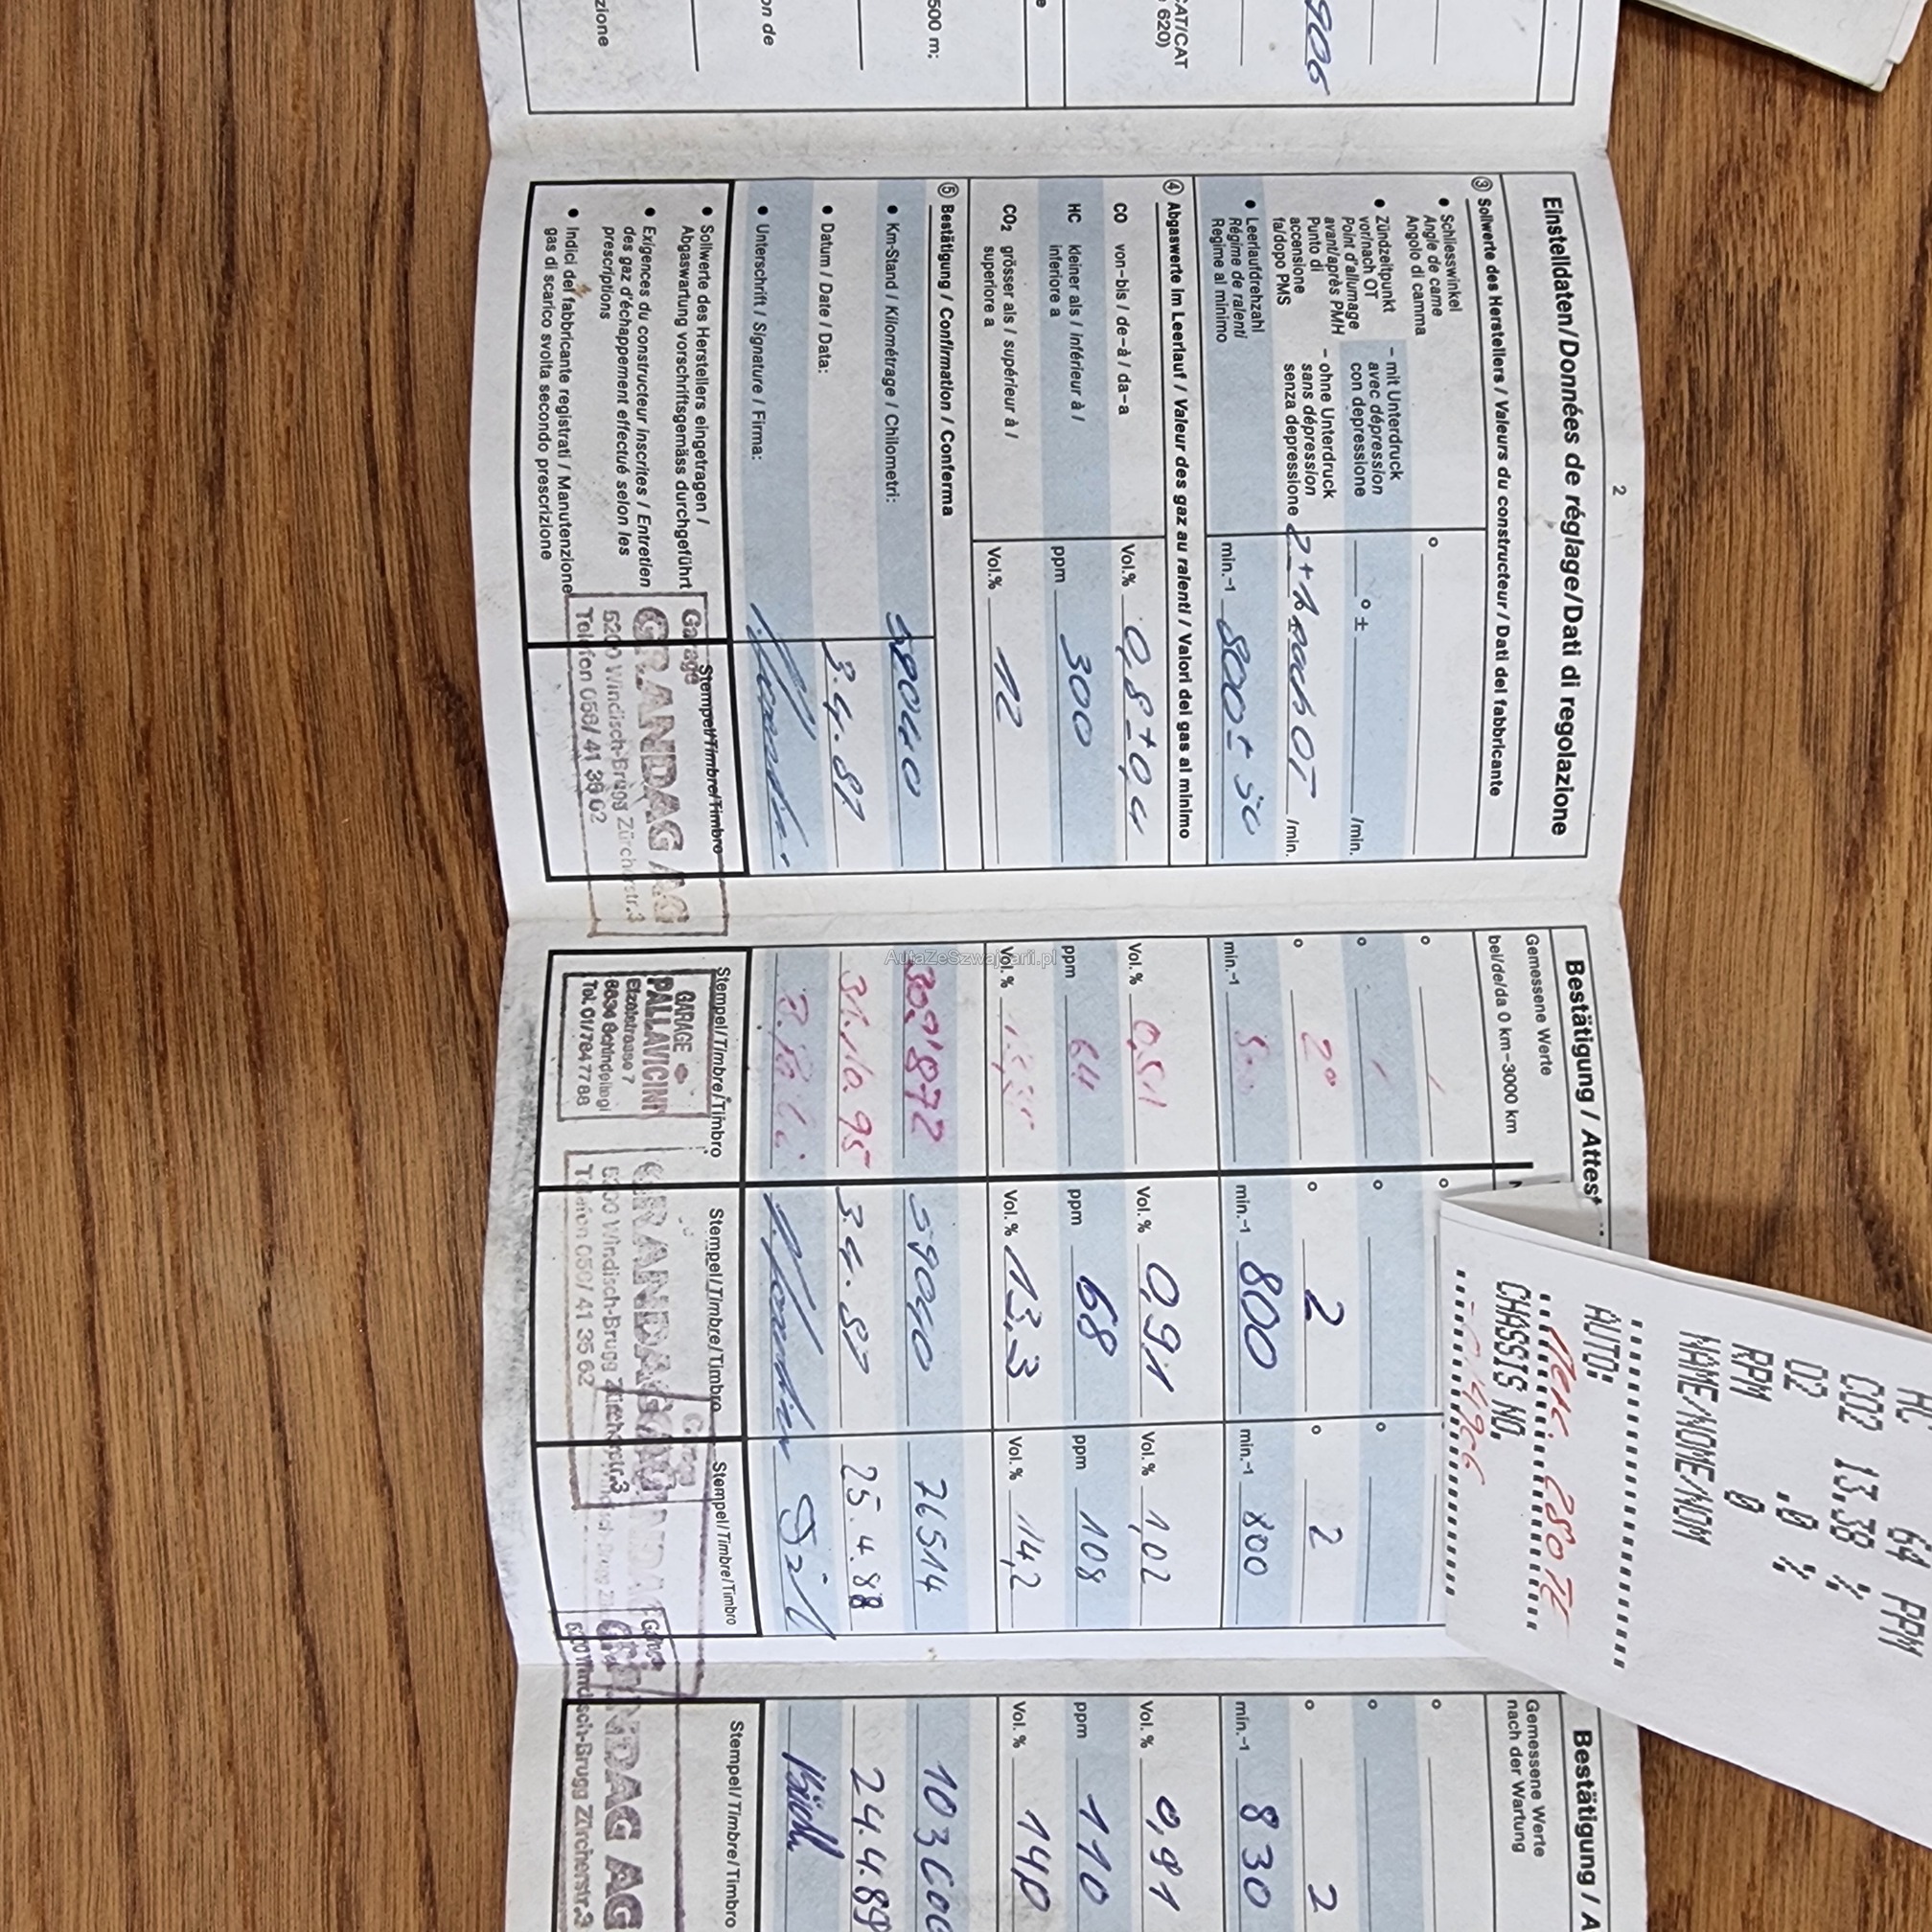 500 m;
on de
zione
CAT/CAT
620)
906
2
Einstelldaten/Données de réglage/Dati di regolazione
③ Sollwerte des Herstellers / Valeurs du constructeur / Dati del fabbricante
• Schliesswinkel
Angle de came
Angolo di camma
°
• Zündzeitpunkt
vor/nach OT
Point d'allumage
avant/après PMH
Punto di
accensione
fa/dopo PMS
– mit Unterdruck
avec dépression
con depressione
° ± /min.
– ohne Unterdruck
sans dépression
senza depressione
nach OT /min.
• Leerlaufdrehzahl
Régime de ralenti
Regime al minimo
min.-1 800 ± 50
④ Abgaswerte im Leerlauf / Valeur des gaz au ralenti / Valori del gas al minimo
CO von–bis / de–à / da–a
Vol.% 0,8 ± 0,4
HC kleiner als / inférieur à /
inferiore a
ppm 300
CO2 grösser als / supérieur à /
superiore a
Vol.% 12
⑤ Bestätigung / Confirmation / Conferma
• Km-Stand / Kilométrage / Chilometri:
59040
• Datum / Date / Data:
3.4.87
• Unterschrift / Signature / Firma:
• Sollwerte des Herstellers eingetragen /
Abgaswartung vorschriftsgemäss durchgeführt
• Exigences du constructeur inscrites / Entretien
des gaz d'échappement effectué selon les
prescriptions
• Indici del fabbricante registrati / Manutenzione
gas di scarico svolta secondo prescrizione
Stempel/Timbre/Timbro
Garage
GRANDAG AG
5200 Windisch-Brugg Zürcherstr.3
Telefon 056/41 35 62
Bestätigung / Attest
Gemessene Werte
bei/de/da 0 km–3000 km
°
°
° 2°
min.-1
Vol. % 0,51
ppm 64
Vol. %
309'872
31.10.95
Stempel/Timbre/Timbro
GARAGE
PALLAVICINI
Etzelstrasse 7
8834 Schindellegi
Tel. 01/784 77 88
°
°
° 2
min.-1 800
Vol. % 0,91
ppm 68
Vol. % 13,3
59040
3.4.87
Stempel/Timbre/Timbro
GRANDAG AG
5200 Windisch-Brugg Zürcherstr.3
Telefon 056/41 35 62
°
° 2
min.-1 800
Vol. % 1,02
ppm 108
Vol. % 14,2
76514
25.4.88
Stempel/Timbre/Timbro
Garage
Bestätigung / A
Gemessene Werte
nach der Wartung
°
°
° 2
min.-1 830
Vol. % 0,91
ppm 110
Vol. % 14,0
24.4.89
Stempel/Timbre/Timbro
Garage
GRANDAG AG
5200 Windisch-Brugg Zürcherstr.3
HC 64 PPM
CO2 13.38 %
O2 .0 %
RPM 0
NAME/NOME/NOM
AUTO:
Merc. 280 TE
CHASSIS NO.
AutaZeSzwajcarii.pl